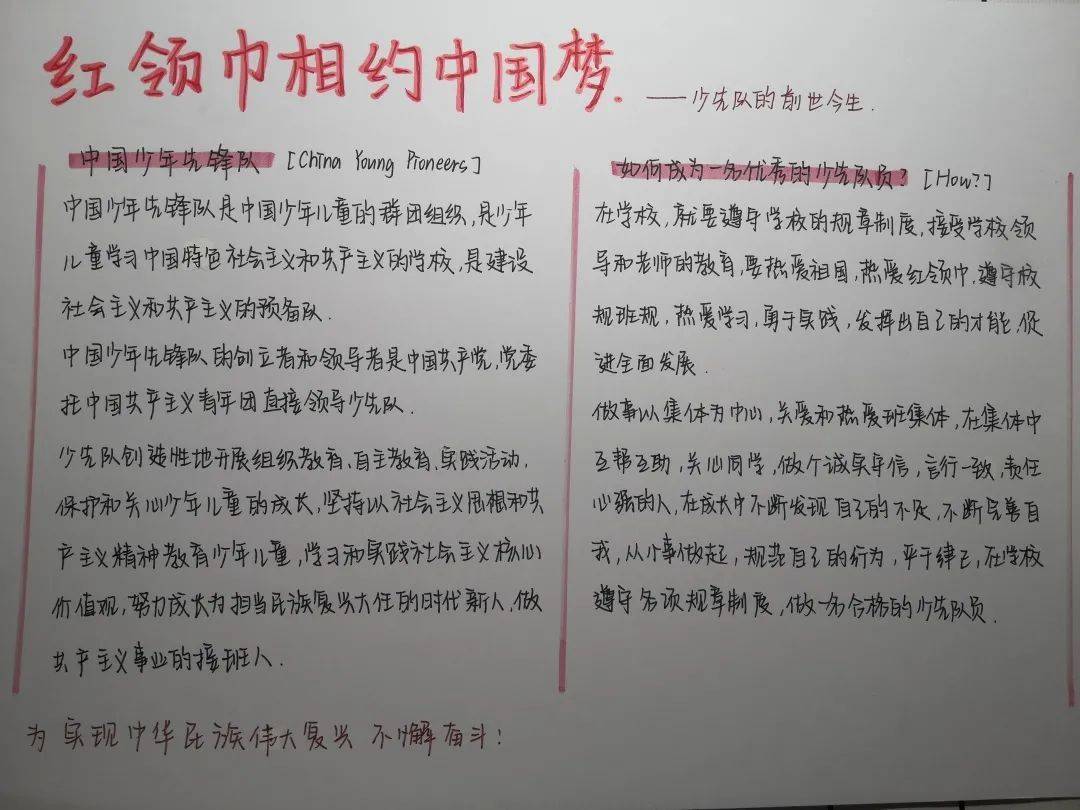 红领巾相约中国梦.
——少先队的前世今生.
中国少年先锋队 [China Young Pioneers]
中国少年先锋队是中国少年儿童的群团组织,是少年
儿童学习中国特色社会主义和共产主义的学校,是建设
社会主义和共产主义的预备队.
中国少年先锋队的创立者和领导者是中国共产党,党委
托中国共产主义青年团直接领导少先队.
少先队创造性地开展组织教育、自主教育、实践活动,
保护和关心少年儿童的成长,坚持以社会主义思想和共
产主义精神教育少年儿童,学习和实践社会主义核心
价值观,努力成长为担当民族复兴大任的时代新人,做
共产主义事业的接班人.
如何成为一名优秀的少先队员? [How?]
在学校,就要遵守学校的规章制度,接受学校领
导和老师的教育,要热爱祖国,热爱红领巾,遵守校
规班规,热爱学习,勇于实践,发挥出自己的才能,促
进全面发展.
做事以集体为中心,关爱和热爱班集体,在集体中
互帮互助,关心同学,做个诚实守信,言行一致,责任
心强的人,在成长中不断发现自己的不足,不断完善自
我,从小事做起,规范自己的行为,严于律己,在学校
遵守各项规章制度,做一名合格的少先队员.
为实现中华民族伟大复兴 不懈奋斗!